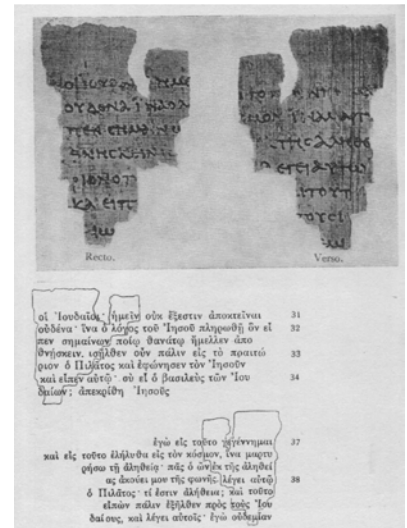 ΟΥΔΕΝΑ ΙΝΑ Ο Λ
ΚΑΙ ΕΙΠ
Recto.
Verso.
οἱ Ἰουδαῖοι· ἡμεῖν οὐκ ἔξεστιν ἀποκτεῖναι 31
οὐδένα· ἵνα ὁ λόγος τοῦ Ἰησοῦ πληρωθῇ ὃν εἶ 32
πεν σημαίνων ποίῳ θανάτῳ ἤμελλεν ἀπο
θνήσκειν. ἰσῆλθεν οὖν πάλιν εἰς τὸ πραιτώ 33
ριον ὁ Πιλᾶτος καὶ ἐφώνησεν τὸν Ἰησοῦν
καὶ εἶπεν αὐτῷ· σὺ εἶ ὁ βασιλεὺς τῶν Ἰου 34
δαίων; ἀπεκρίθη Ἰησοῦς
ἐγὼ εἰς τοῦτο γεγέννημαι 37
καὶ εἰς τοῦτο ἐλήλυθα εἰς τὸν κόσμον, ἵνα μαρτυ
ρήσω τῇ ἀληθείᾳ· πᾶς ὁ ὢν ἐκ τῆς ἀληθεί
ας ἀκούει μου τῆς φωνῆς. λέγει αὐτῷ 38
ὁ Πιλᾶτος· τί ἐστιν ἀλήθεια; καὶ τοῦτο
εἰπὼν πάλιν ἐξῆλθεν πρὸς τοὺς Ἰου
δαίους, καὶ λέγει αὐτοῖς· ἐγὼ οὐδεμίαν